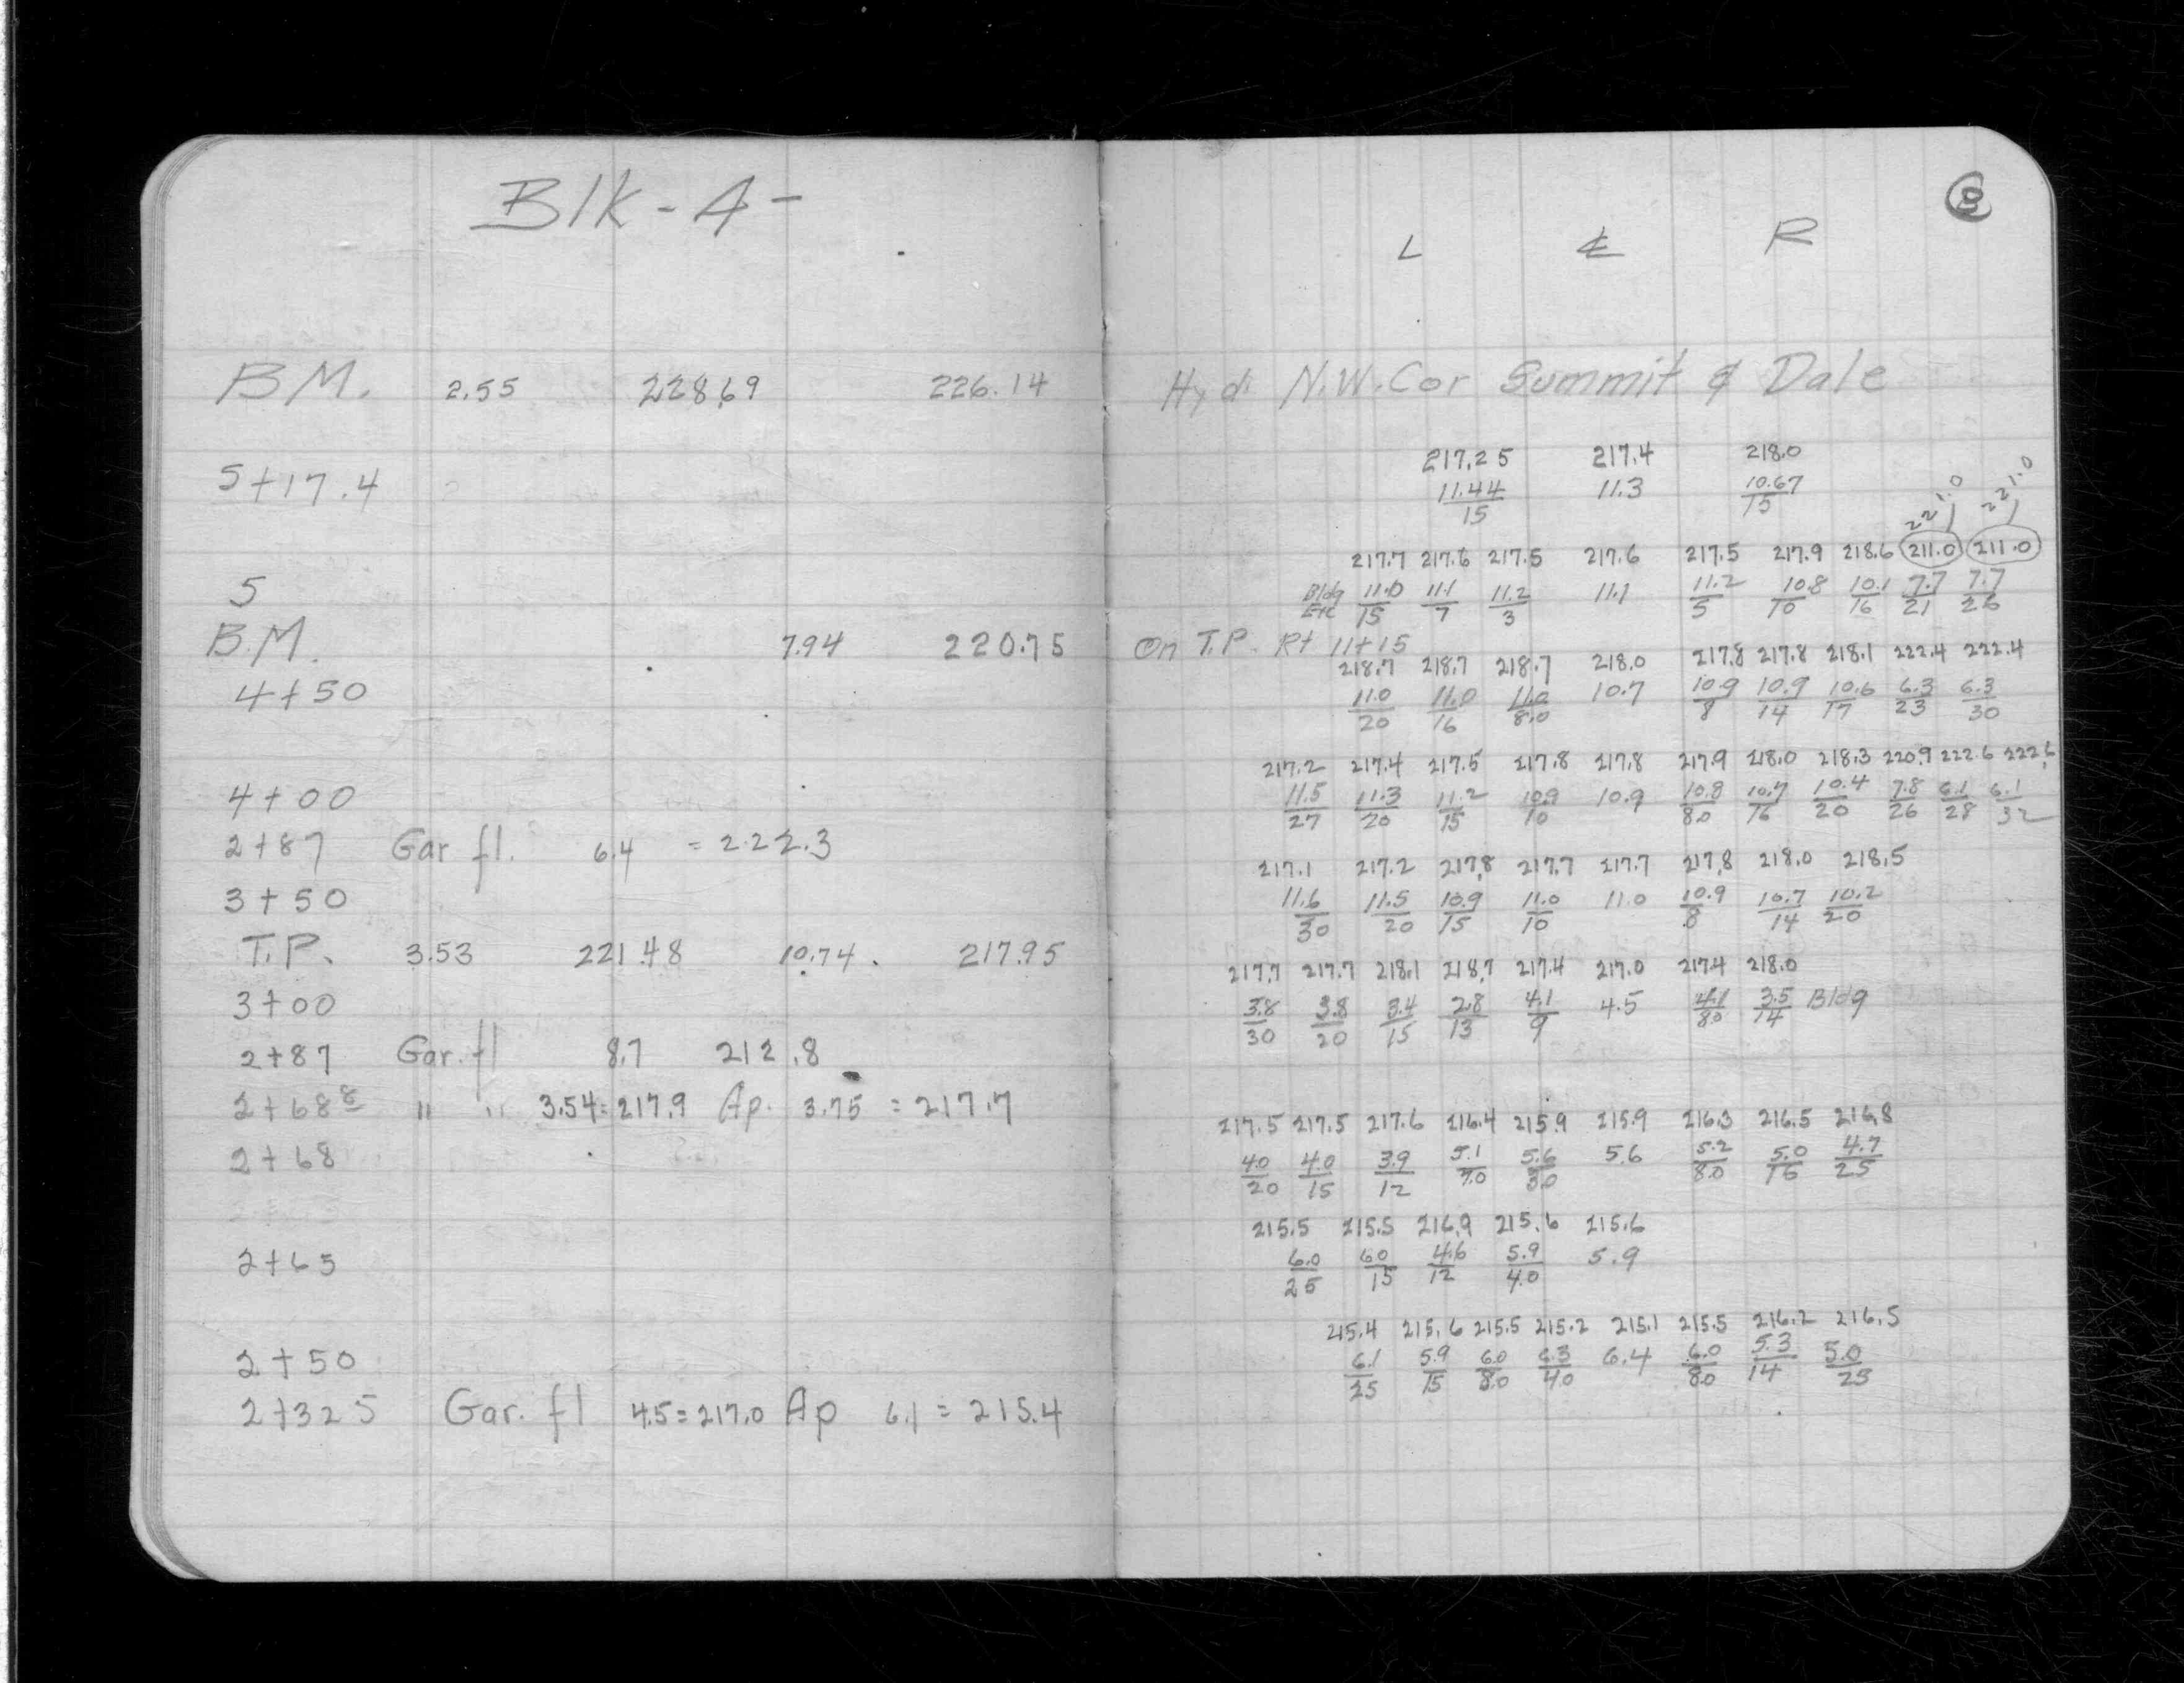 Blk - 4 -
B.M. 2.55 228.69 226.14
5+17.4
5
B.M. 7.94 220.75
4+50
4+00
2+87 Gar fl. 6.4 = 222.3
3+50
T.P. 3.53 221.48 10.74 217.95
3+00
2+87 Gar. fl 8.7 212.8
2+68 8 " " 3.54 = 217.9 Ap. 3.75 = 217.7
2+68
2+65
2+50
2+32 5 Gar. fl 4.5 = 217.0 Ap 6.1 = 215.4
8
L ℄ R
Hyd. N.W. Cor Summit & Dale
217.25 217.4 218.0
11.44/15 11.3 10.67/15
221.0 221.0
217.7 217.6 217.5 217.6 217.5 217.9 218.6 211.0 211.0
Bldg 11.0/15 11.1/7 11.2/3 11.1 11.2/5 10.8/10 10.1/16 7.7/21 7.7/26
On T.P. Rt 11+15
218.7 218.7 218.7 218.0 217.8 217.8 218.1 222.4 222.4
11.0/20 11.0/16 11.0/8.0 10.7 10.9/8 10.9/14 10.6/17 6.3/23 6.3/30
217.2 217.4 217.5 217.8 217.8 217.9 218.0 218.3 220.9 222.6 222.6
11.5/27 11.3/20 11.2/15 10.9/10 10.9 10.8/8.0 10.7/16 10.4/20 7.8/26 6.1/28 6.1/32
217.1 217.2 217.8 217.7 217.7 217.8 218.0 218.5
11.6/30 11.5/20 10.9/15 11.0/10 11.0 10.9/8 10.7/14 10.2/20
217.7 217.7 218.1 218.7 217.4 217.0 217.4 218.0
3.8/30 3.8/20 3.4/15 2.8/13 4.1/9 4.5 4.1/8.0 3.5/14 Bldg
217.5 217.5 217.6 216.4 215.9 215.9 216.3 216.5 216.8
4.0/20 4.0/15 3.9/12 5.1/7.0 5.6/3.0 5.6 5.2/8.0 5.0/16 4.7/25
215.5 215.5 216.9 215.6 215.6
6.0/25 6.0/15 4.6/12 5.9/4.0 5.9
215.4 215.6 215.5 215.2 215.1 215.5 216.2 216.5
6.1/25 5.9/15 6.0/8.0 6.3/4.0 6.4 6.0/8.0 5.3/14 5.0/25